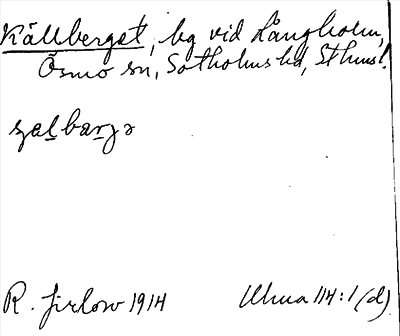 Källberget, bg vid Långholm,
Ösmo sn, Sotholms hd, Sthmsl.
R. Jirlow 1914
Ulua 114:1 (d)